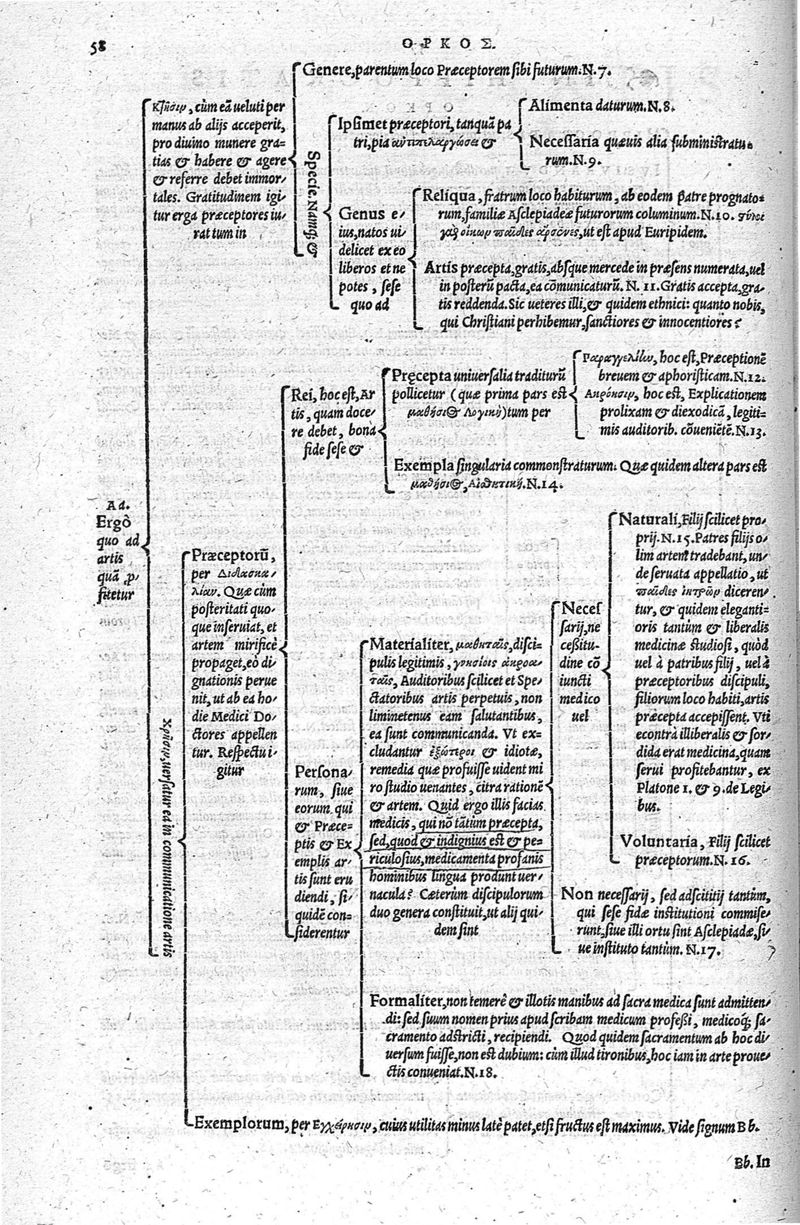 58
ΟΡΚΟΣ.
Genere, parentum loco Præceptorem sibi futurum. N. 7.
Κτῆσιν, cùm eā ueluti per
manus ab alijs acceperit,
pro diuino munere gra-
tias & habere & agere
& referre debet immor-
tales. Gratitudinem igi
tur erga præceptores iu-
rat tum in
Specie. Namq́; &
Ipsimet præceptori, tanquā pa
tri, pia ἀντιπελαργώσει &
Alimenta daturum. N. 8.
Necessaria quæuis alia subministratu-
rum. N. 9.
Genus e-
ius, natos ui
delicet ex eo
liberos et ne
potes, sese
quo ad
Reliqua, fratrum loco habiturum, ab eodem patre prognato-
rum, familiæ Asclepiadeæ futurorum columinum. N. 10.
οἴκων παῖδες ἄρσενες, ut est apud Euripidem.
Artis præcepta, gratis, absque mercede in præsens numerata, uel
in posterū pacta, ea cōmunicaturū. N. 11. Gratis accepta, gra-
tis reddenda. Sic ueteres illi, & quidem ethnici: quanto nobis,
qui Christiani perhibemur, sanctiores & innocentiores?
Ad.
Ergò
quo ad
artis
quā ꝓ-
fitetur
Χρῆσιν, uersatur ea in communicatione artis
Præceptorū,
per Διδασκα-
λίαν. Quæ cùm
posteritati quo-
que inseruiat, et
artem mirificè
propaget, eò di-
gnationis perue
nit, ut ab ea ho-
die Medici Do-
ctores appellen
tur. Respectu i-
gitur
Rei, hoc est, Ar
tis, quam doce-
re debet, bona
fide sese &
Pręcepta uniuersalia traditurū
pollicetur (quæ prima pars est
μαθήσεως Λογική) tum per
Παραγγελίαν, hoc est, Præceptionē
breuem & aphoristicam. N. 12.
Ακρόασιν, hoc est, Explicationem
prolixam & diexodicā, legiti-
mis auditorib. cōueniētē. N. 13.
Exempla singularia commonstraturum. Quæ quidem altera pars est
μαθήσεως, Αἰσθητική. N. 14.
Persona-
rum, siue
eorum qui
& Præce-
ptis & Ex
emplis ar-
tis sunt eru
diendi, si-
quidē con-
siderentur
Materialiter, μαθηταῖς, disci-
pulis legitimis, γνησίοις ἀκροα-
ταῖς, Auditoribus scilicet et Spe-
ctatoribus artis perpetuis, non
liminetenus eam salutantibus,
ea sunt communicanda. Vt ex-
cludantur ἐξώτεροι & idiotæ,
remedia quæ profuisse uident mi
ro studio uenantes, citra rationē
& artem. Quid ergo illis facias
medicis, qui nō tātùm præcepta,
sed, quod & indignius est & pe-
riculosius, medicamenta profanis
hominibus lingua produnt uer-
nacula? Cæterùm discipulorum
duo genera constituit, ut alij qui-
dem sint
Neces-
sarij, ne
ceßitu-
dine cō
iuncti
medico
uel
Naturali, Filij scilicet pro-
prij. N. 15. Patres filijs o-
lim artem tradebant, un-
de seruata appellatio, ut
παῖδες ἰητρῶν diceren-
tur, & quidem eleganti-
oris tantùm & liberalis
medicinæ studiosi, quòd
uel à patribus filij, uel à
præceptoribus discipuli,
filiorum loco habiti, artis
præcepta accepissent. Vti
econtrà illiberalis & sor-
dida erat medicina, quam
serui profitebantur, ex
Platone 1. & 9. de Legi-
bus.
Voluntaria, Filij scilicet
præceptorum. N. 16.
Non necessarij, sed adscititij tantùm,
qui sese fidæ institutioni commise-
runt, siue illi ortu sint Asclepiadæ, si-
ue instituto tantùm. N. 17.
Formaliter, non temerè & illotis manibus ad sacra medica sunt admitten-
di: sed suum nomen prius apud scribam medicum profeßi, medicoq́; sa-
cramento adstricti, recipiendi. Quod quidem sacramentum ab hoc di-
uersum fuisse, non est dubium: cùm illud tironibus, hoc iam in arte proue-
ctis conueniat. N. 18.
Exemplorum, per Εγχείρησιν, cuius utilitas minus latè patet, etsi fructus est maximus. Vide signum Bb.
Bb. In